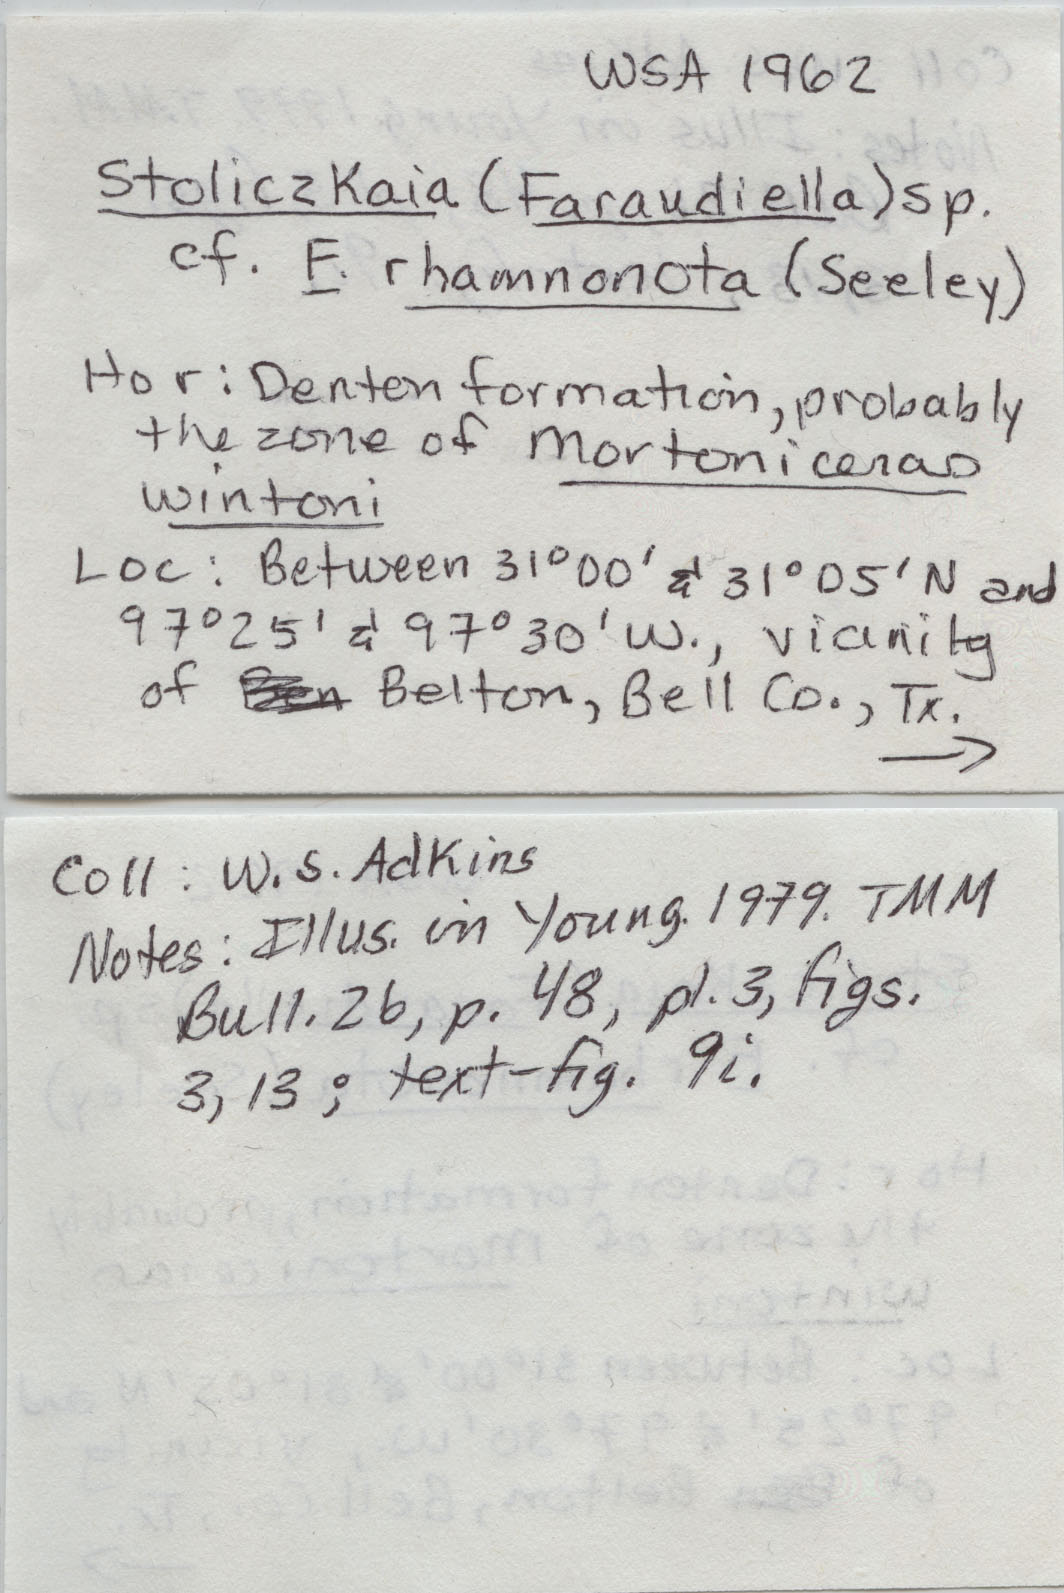 WSA 1962
Stoliczkaia (Faraudiella) sp.
cf. F. rhamnonota (Seeley)
Hor: Denton formation, probably
the zone of Mortoniceras
wintoni
Loc: Between 31°00' & 31°05'N and
97°25' & 97°30'W., vicinity
of Ben Belton, Bell Co., Tx.
→
Coll: W.S. Adkins
Notes: Illus. in Young. 1979. TMM
Bull. 26, p. 48, pl. 3, figs.
3, 13; text-fig. 9i.